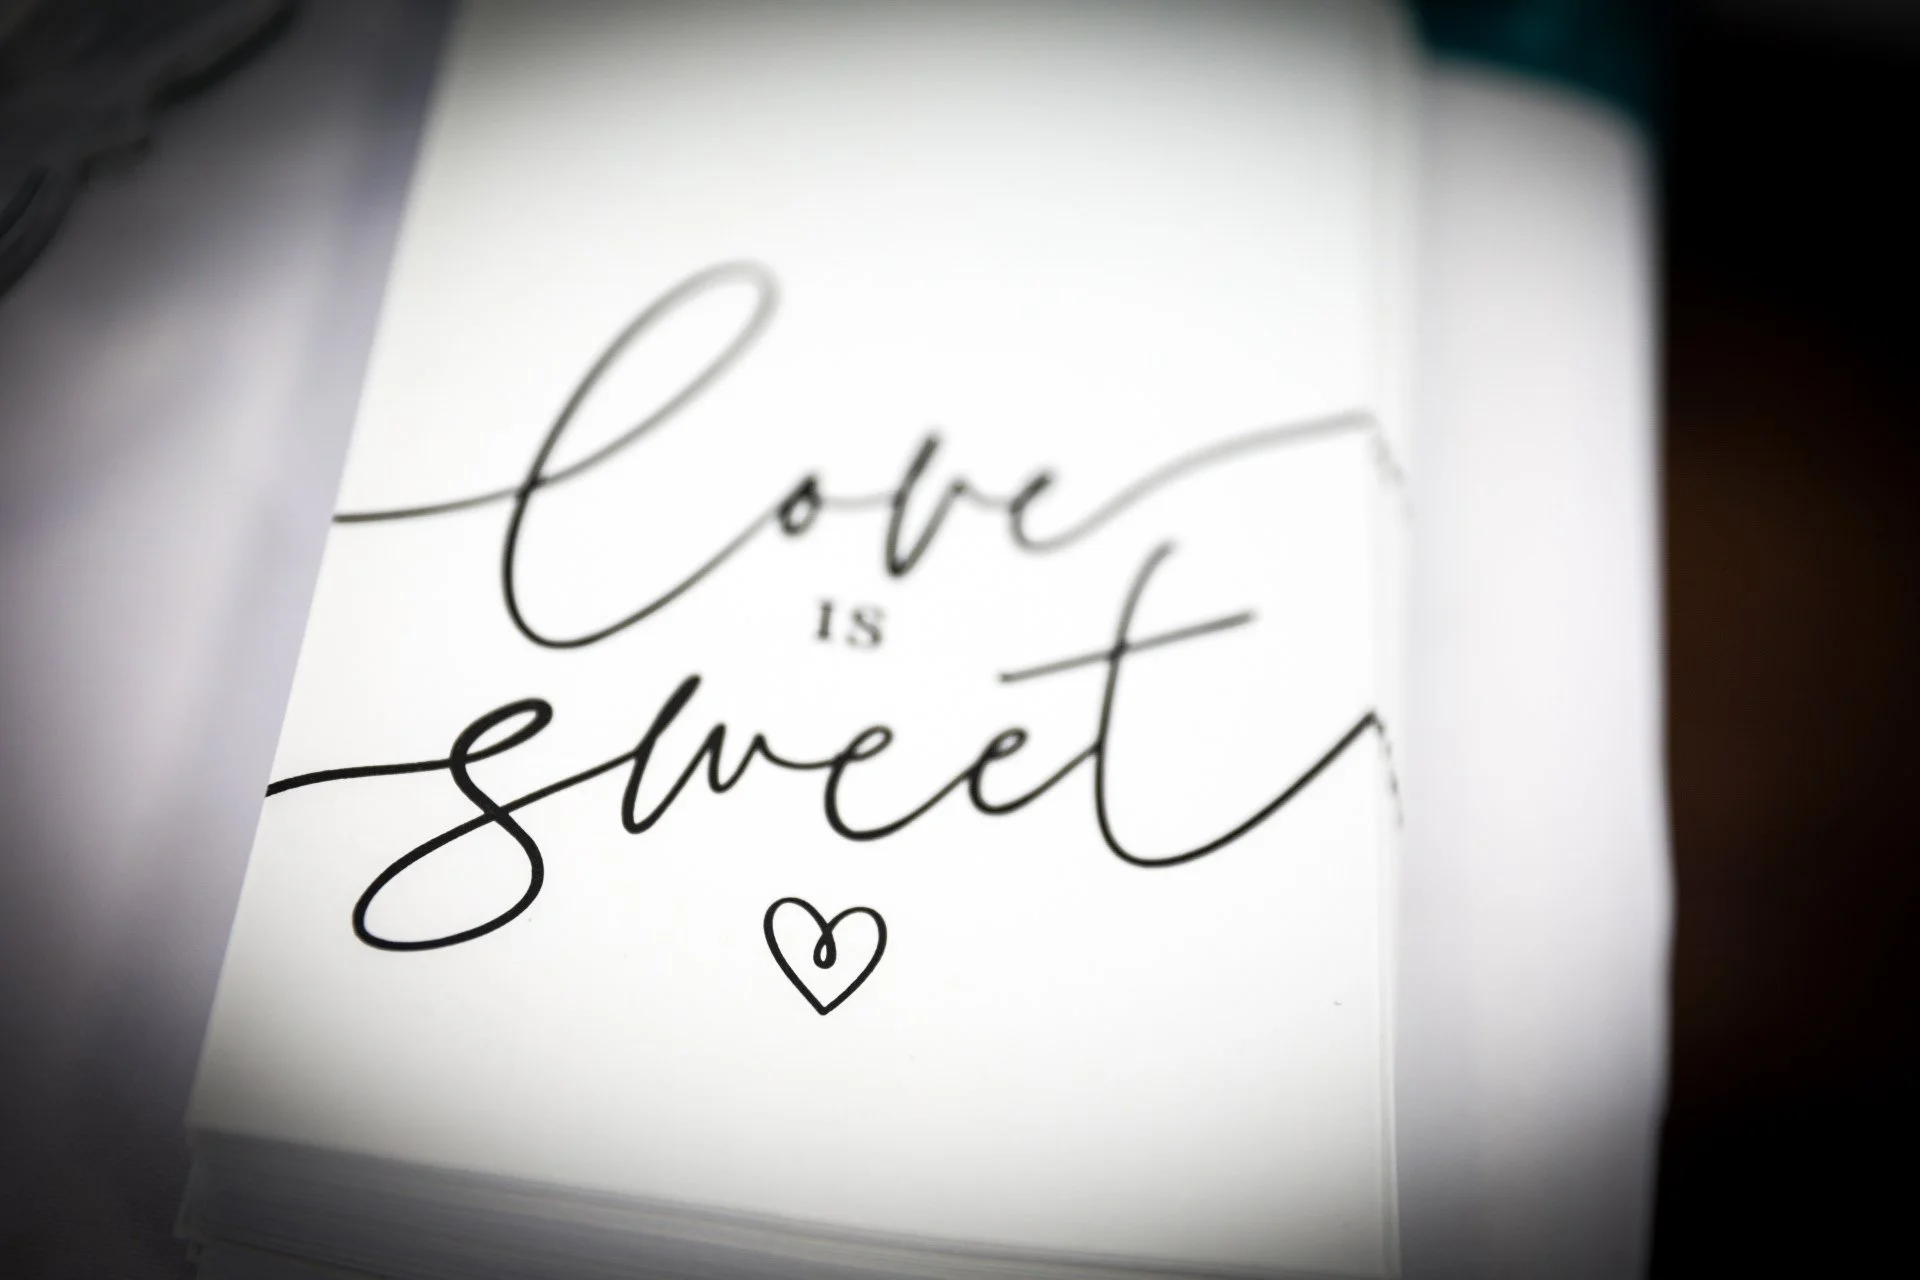 love
IS
sweet